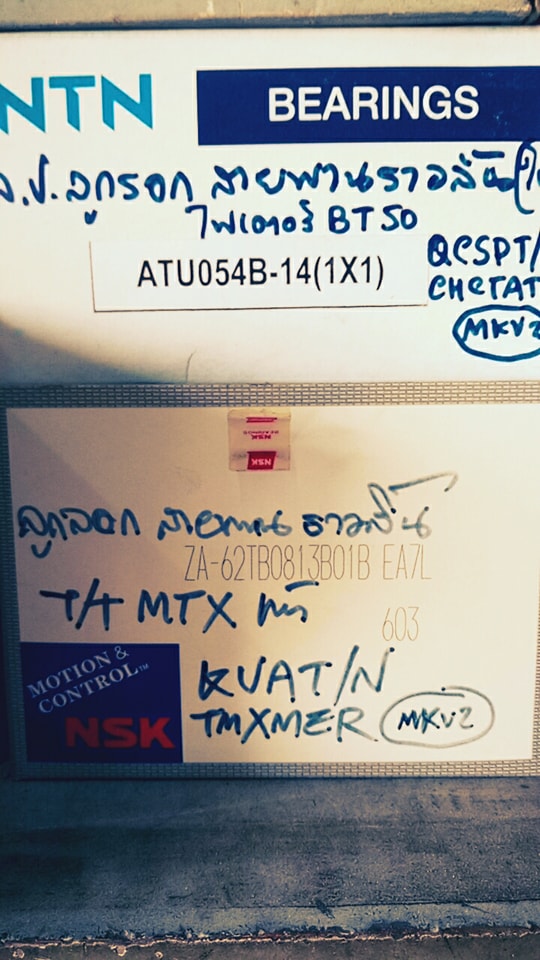 NTN BEARINGS
ลูกรอก สายพานราวลิ้น
ไฟเตอร์ BT50
ATU054B-14(1X1)
QCSPT/
CHCTAT
MKV2
NSK
NSK
ลูกลอก สายพาน ราวลิ้น
ZA-62TB0813B01B EA7L
T/T MTX
603
MOTION &
CONTROL™
NSK
KVAT/N
TMXMER
MKV2